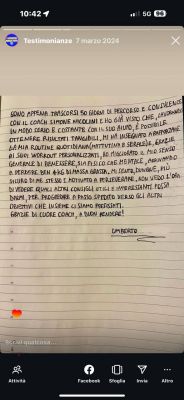 10:42
Testimonianze 7 marzo 2024
SONO APPENA TRASCORSI 30 GIORNI DI PERCORSO E CONVIVENZA
CON IL COACH SIMONE NICOLINI E HO GIÀ VISTO CHE, LAVORANDO
IN MODO SERIO E COSTANTE CON IL SUO AIUTO, È POSSIBILE
OTTENERE RISULTATI TANGIBILI. MI HA INSEGNATO A
LA MIA ROUTINE QUOTIDIANA (MATTUTINA E SERALE) E, GRAZIE
AI SUOI WORKOUT PERSONALIZZATI, HO MIGLIORATO IL MIO SENSO
GENERALE DI BENESSERE, SIA FISICO CHE MENTALE, ARRIVANDO
A PERDERE BEN 4 KG DI MASSA GRASSA. MI SENTO, DUNQUE, PIÙ
SICURO DI ME STESSO E MOTIVATO A PERSEVERARE. NON VEDO L'ORA
DI VEDERE QUALI ALTRI CONSIGLI UTILI E INTERESSANTI POSSA
DARMI, PER PROCEDERE A PASSO SPEDITO VERSO GLI ALTRI
OBIETTIVI CHE INSIEME CI SIAMO PREFISSATI.
GRAZIE DI CUORE COACH, A BUON RENDERE!
UMBERTO
Scrivi qualcosa...
Attività Facebook Sfoglia Invia Altro